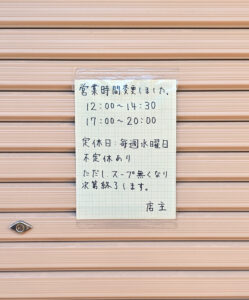 営業時間変更しました。
12:00〜14:30
17:00〜20:00
定休日:毎週水曜日
不定休あり
ただし、スープ無くなり
次第終了します。
店主